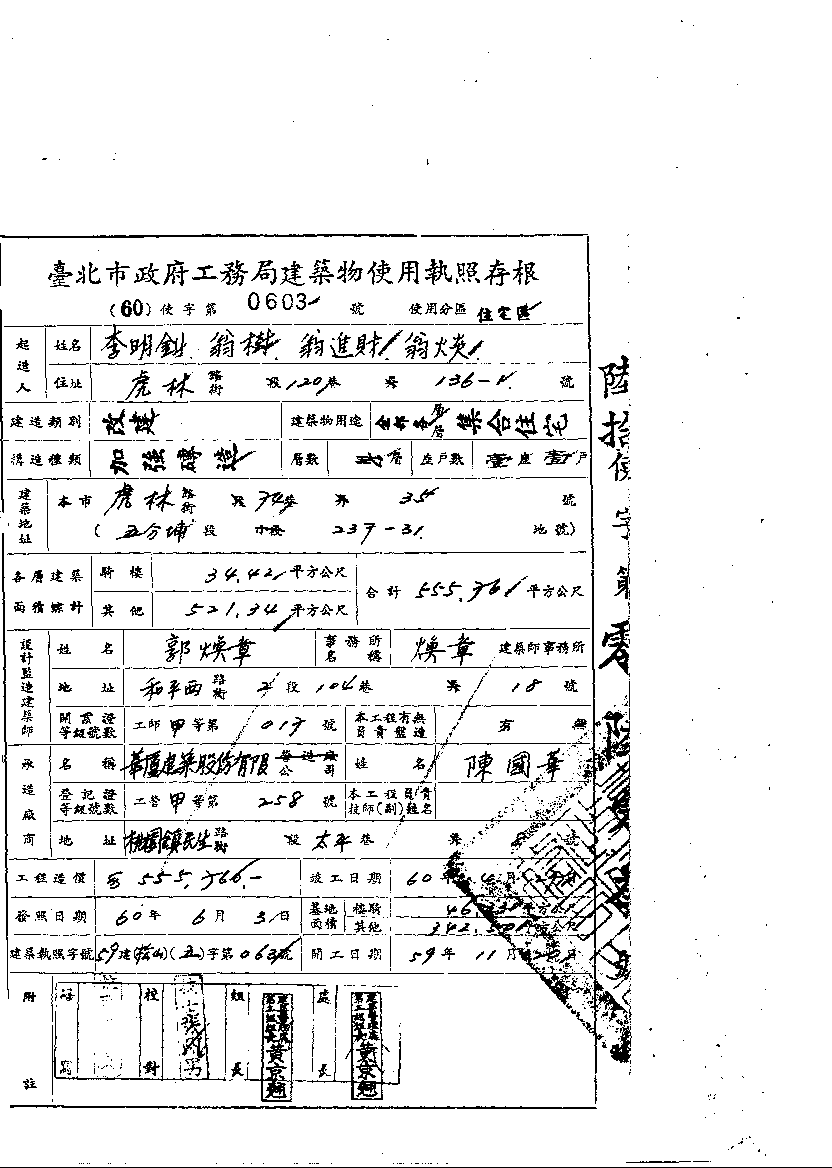 臺北市政府工務局建築物使用執照存根
(60)使字第 0603 號 使用分區 住宅區
起造人 姓名 李明 翁樹 翁進財 翁煥
住址 虎林 路街 段 120 巷 弄 136-1 號
建造類別 改建 建築物用途 集合住宅
構造種類 加強磚造 層數 層 座戶數 壹座 壹戶
建築地址 本市 虎林 路街 段 74 巷 弄 35 號
(五分埔 段 小段 237-31 地號)
各層建築面積總計 騎樓 34.42 平方公尺 合計 555.76 平方公尺
其他 521.34 平方公尺
設計監造建築師 姓名 郭煥章 事務所名稱 煥章 建築師事務所
地址 和平西 路街 2 段 104 巷 弄 18 號
開業證等級號數 工師 甲 等第 017 號 本工程有無負責監造 有 無
承造廠商 名稱 華廈建築股份有限 公司 姓名 陳國華
登記證等級號數 工營 甲 等第 258 號 本工程負責技師(副)姓名
地址 桃園鎮民生 路街 段 太平 巷 弄 號
工程造價 555,766.- 竣工日期 60 年 4 月 日
發照日期 60 年 6 月 3 日 基地面積 騎樓 平方公尺
其他 342.50 平方公尺
建築執照字號 59 建(松山)(五)字第 063 號 開工日期 59 年 11 月 日
附註 校對 組長 黃京翹 處長 黃京翹
陸拾使字第零陸